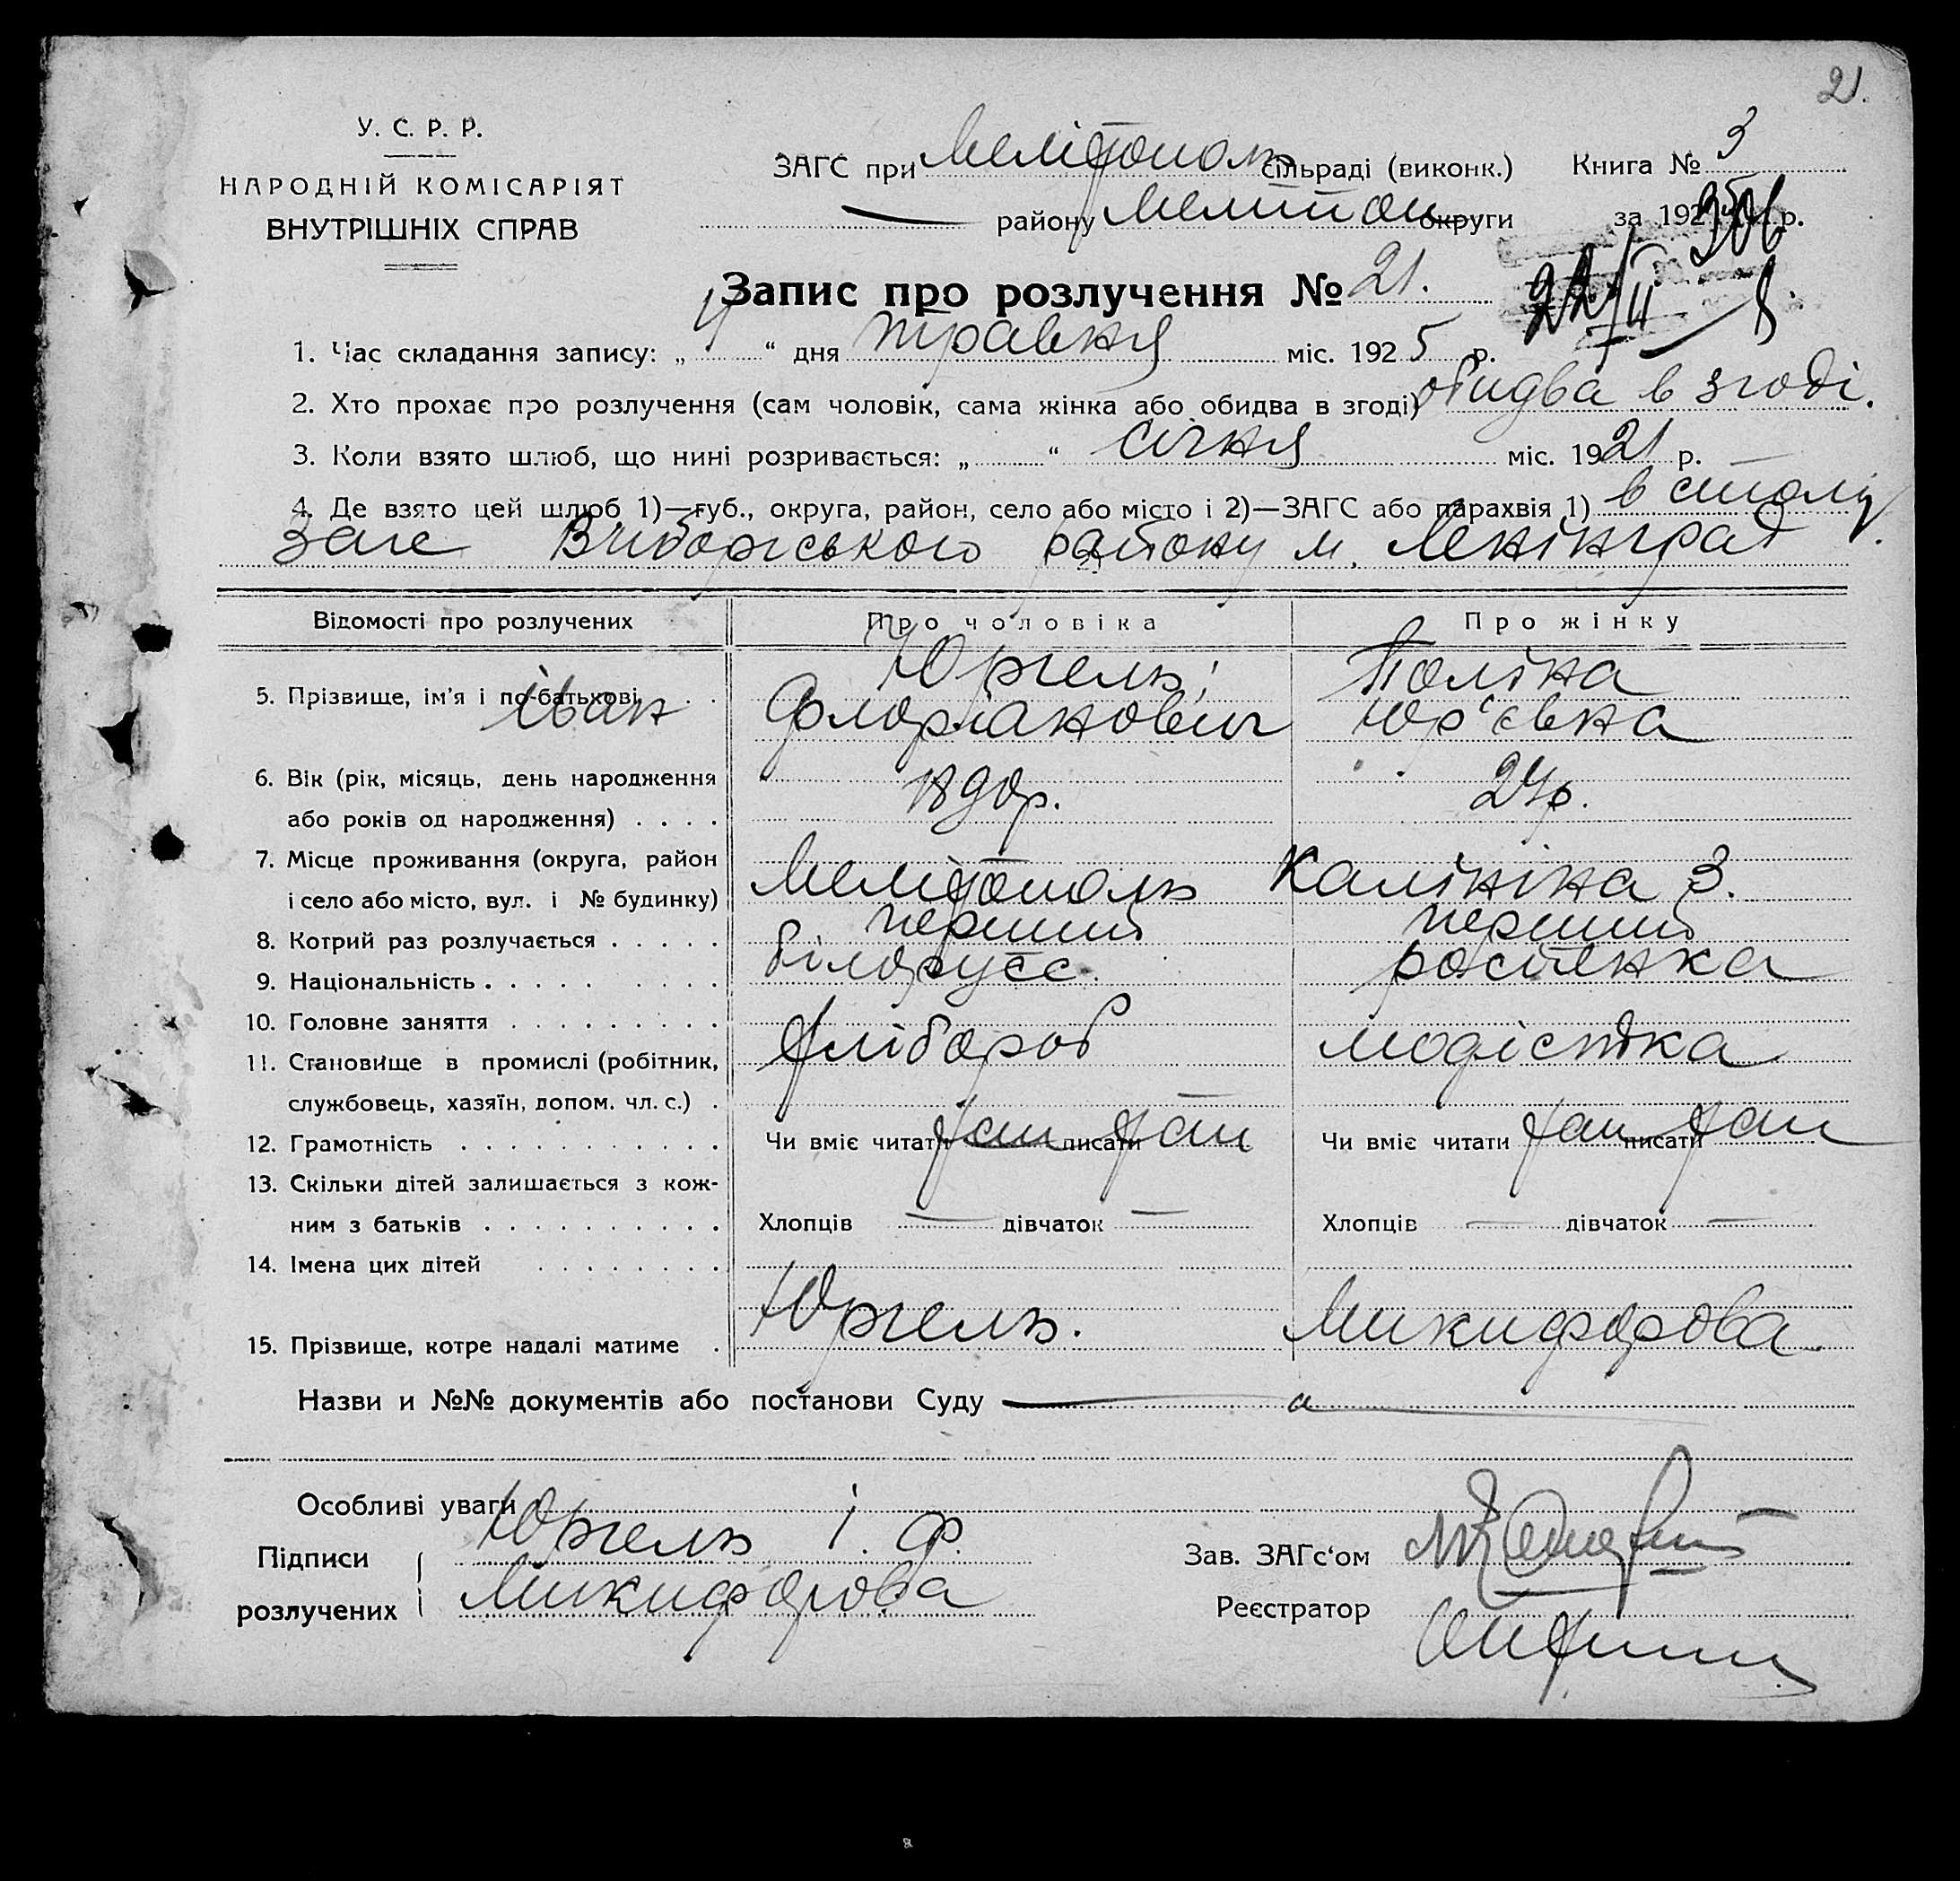 21.
У. С. Р. Р.
НАРОДНІЙ КОМІСАРІЯТ
ВНУТРІШНІХ СПРАВ
ЗАГС при Мелітополь сільраді (виконк.) Книга № 3
— району Меліпоп округи за 1925 р.
Запис про розлучення № 21.
1. Час складання запису: „4“ дня травня міс. 1925 р.
2. Хто прохає про розлучення (сам чоловік, сама жінка або обидва в згоді) обидва в згоді.
3. Коли взято шлюб, що нині розривається: „ “ січня міс. 1921 р.
4. Де взято цей шлюб 1)—губ., округа, район, село або місто і 2)—ЗАГС або парахвія 1) в столу
Загс Виборгського району м. Ленінград
Відомості про розлучених Про чоловіка Про жінку
5. Прізвище, ім'я і по-батькові . . Юргель; Поліна
Іван Флоріанович Юр'євна
6. Вік (рік, місяць, день народження
або років од народження) . . . . 1890р. 24р.
7. Місце проживання (округа, район
і село або місто, вул. і № будинку) Мелітополь Калініна 3.
8. Котрий раз розлучається . . . . . перший перший
9. Національність . . . . . . . . . білорусс. росіенка
10. Головне заняття . . . . . . . . .
11. Становище в промислі (робітник, хлібороб модістка
службовець, хазяїн, допом. чл. с.) .
12. Грамотність . . . . . . . . . . . Чи вміє читати так писати так Чи вміє читати так писати так
13. Скільки дітей залишається з кож-
ним з батьків . . . . . . . . . . Хлопців — дівчаток — Хлопців — дівчаток —
14. Імена цих дітей . . . . . . . .
15. Прізвище, котре надалі матиме . Юргель. Микифорова.
Назви и №№ документів або постанови Суду —
Особливі уваги
Підписи Юргель І. Ф. Зав. ЗАГс‘ом
розлучених Микифорова Реєстратор